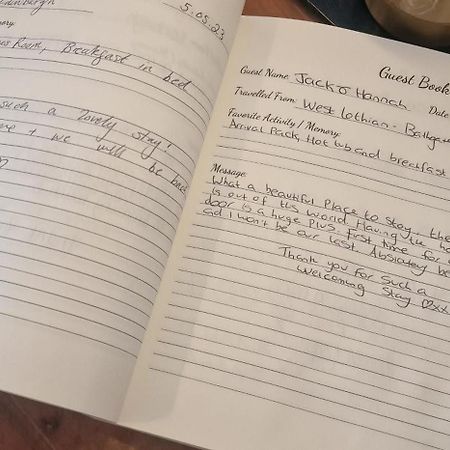 Edinburgh
5.05.23
Room, Breakfast in bed
such a lovely stay!
+ we will be back
Guest Book
Guest Name: Jack & Hannah
Travelled From: West Lothian - Bathgate
Date
Favorite Activity / Memory:
Arrival Pack, Hot tub and breakfast
Message:
What a beautiful Place to stay. The
is out of this world. Having the
door is a huge Plus. First time for
ad I won't be our last. Absolutely
Thank you for such a
Welcoming Stay ♡xx